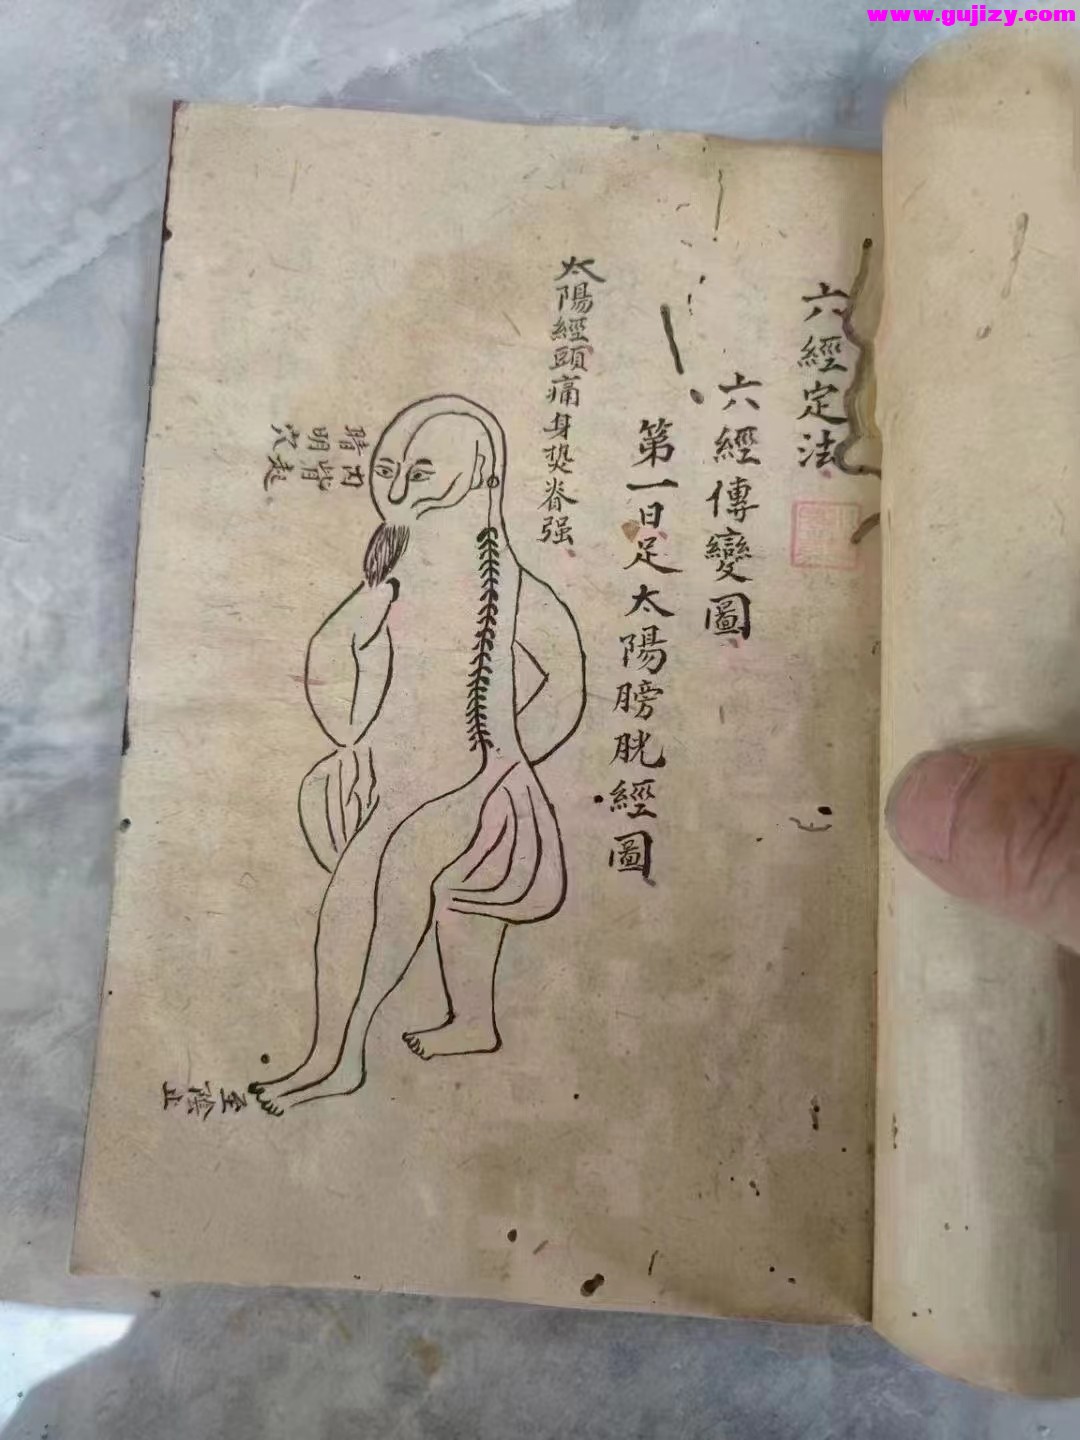 www.gujizy.com
六經定法
六經傳變圖
第一日足太陽膀胱經圖
太陽經頭痛身熱脊强
内眥睛明穴起
至陰止